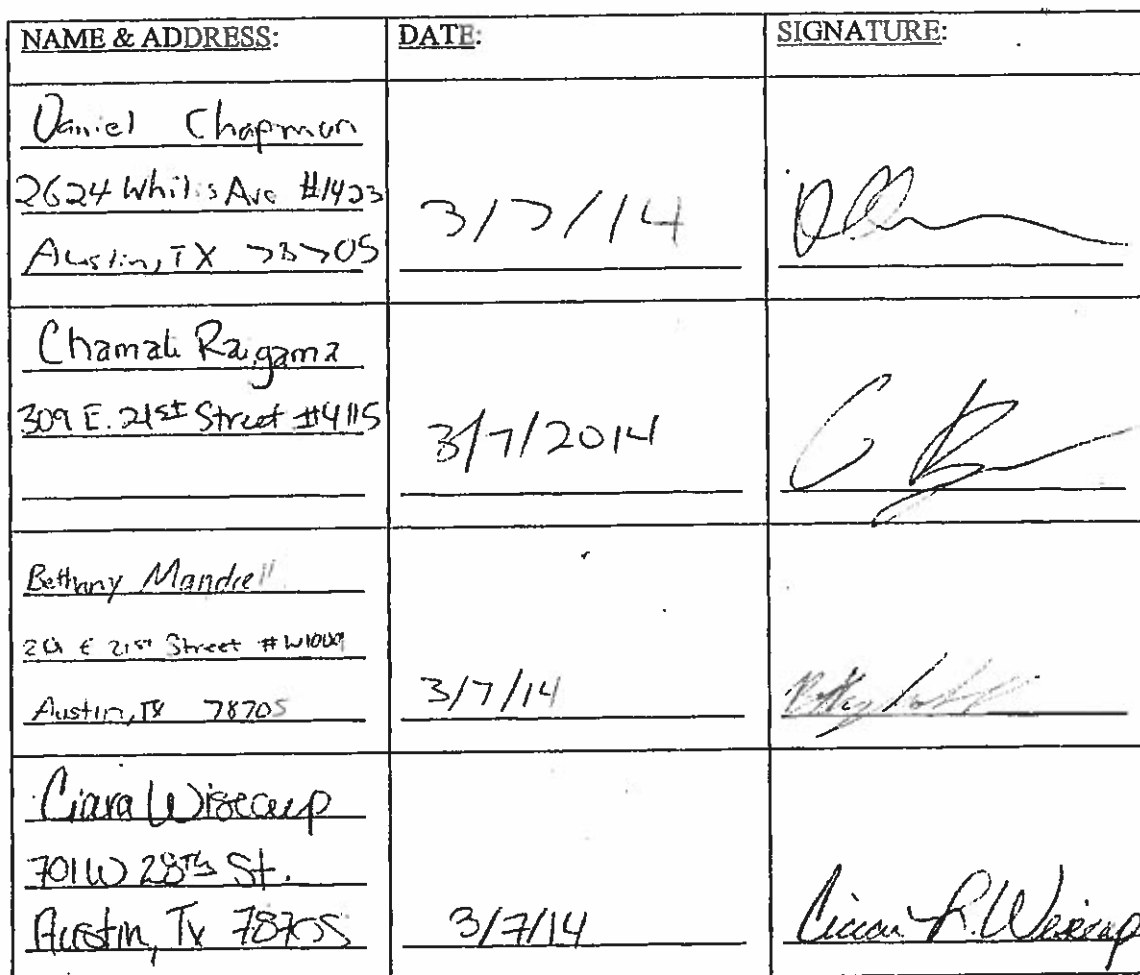 NAME & ADDRESS: DATE: SIGNATURE:
Daniel Chapman
2624 Whitis Ave #1423
Austin, TX 78705
3/7/14
Chamali Raigama
309 E. 21st Street #4115
3/7/2014
Bethany Mandrell
E 21st Street
Austin, TX 78705
3/7/14
Ciara Wisecup
701 W 28TH St.
Austin, Tx 78705
3/7/14
Ciara R. Wisecup